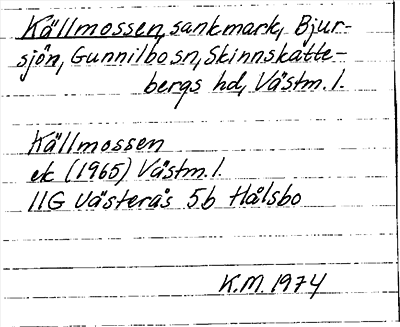 Källmossen, sankmark, Bjur-
sjön, Gunnilbo sn, Skinnskatte-
bergs hd, Västm. l.
Källmossen
ek (1965) Västm. l.
11G Västerås 5b Hålsbo
K.M. 1974